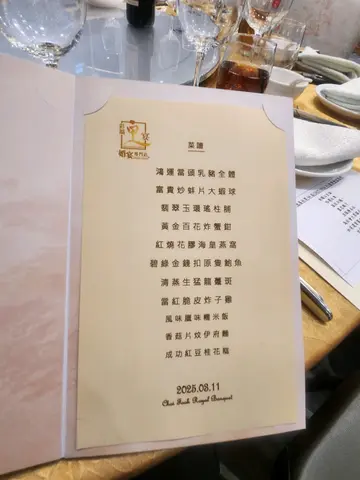 囍宴
婚宴專門店
菜譜
鴻運當頭乳豬全體
富貴炒蚌片大蝦球
翡翠玉環瑤柱脯
黃金百花炸蟹鉗
紅燒花膠海皇燕窩
碧綠金錢扣原隻鮑魚
清蒸生猛龍躉斑
當紅脆皮炸子雞
風味臘味糯米飯
香菇片炆伊府麵
成功紅豆桂花糕
2025.03.11
Royal Banquet